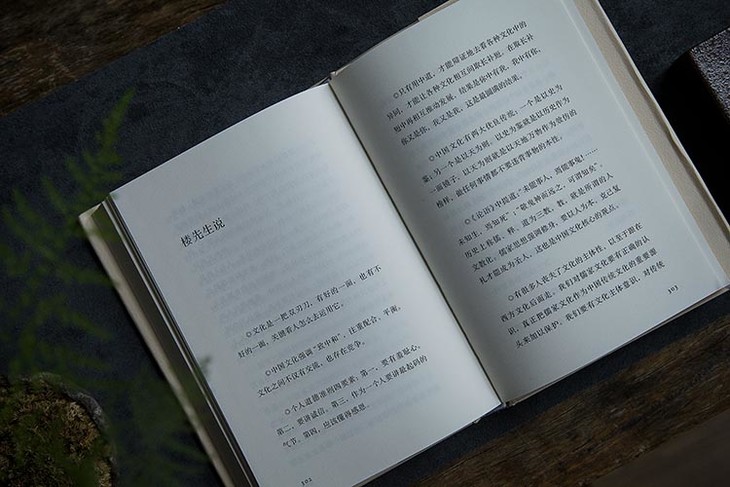 楼先生说
○文化是一把双刃刀，有好的一面，也有不
好的一面，关键看人怎么去运用它。
○中国文化强调“致中和”，注重配合、平衡，
文化之间不仅有交流，也存在竞争。
○个人道德准则四要素：第一，要有羞耻心，
第二，要讲诚信，第三，作为一个人要讲最起码的
气节，第四，应该懂得感恩。
302
○只有用中道，才能辩证地去看各种文化中的
异同，才能让各种文化相互间取长补短，在取长补
短中再相互推动发展，结果是你中有我，我中有你，
你又是你，我又是我，这是最圆满的结果。
○中国文化有两大优良传统：一个是以史为
鉴；另一个是以天为则。以史为鉴就是以历史作为
一面镜子；以天为则就是以天地万物作为效仿的
榜样，做任何事情都不要违背事物的本性。
○《论语》中间道：“未能事人，焉能事鬼！……
未知生，焉知死”；“敬鬼神而远之，可谓知矣”。
历史上称儒、释、道为三教，教，就是所谓的人
文教化，儒家思想强调修身，要以人为本，克己复
礼才能成为玄人，这也是中国文化核心的观点。
○有很多人丧失了文化的主体性，以至于跟在
西方文化后面走。我们对儒家文化要有正确的认
识，真正把儒家文化作为中国传统文化的重要源
头来加以保护。我们要有文化主体意识，对传统
303